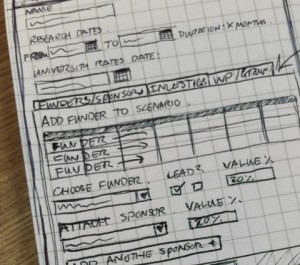 NAME
RESEARCH DATES
FROM TO DURATION: X MONTHS.
UNIVERSITY RATES DATE:
FUNDERS/SPONSORS INVESTIGS WP/
ADD FUNDER TO SCENARIO.
FUNDER
FUNDER
FUNDER
CHOOSE FUNDER LEAD? VALUE %
20%
ATTACH SPONSOR VALUE %
20%
ADD ANOTHE SPONSOR +